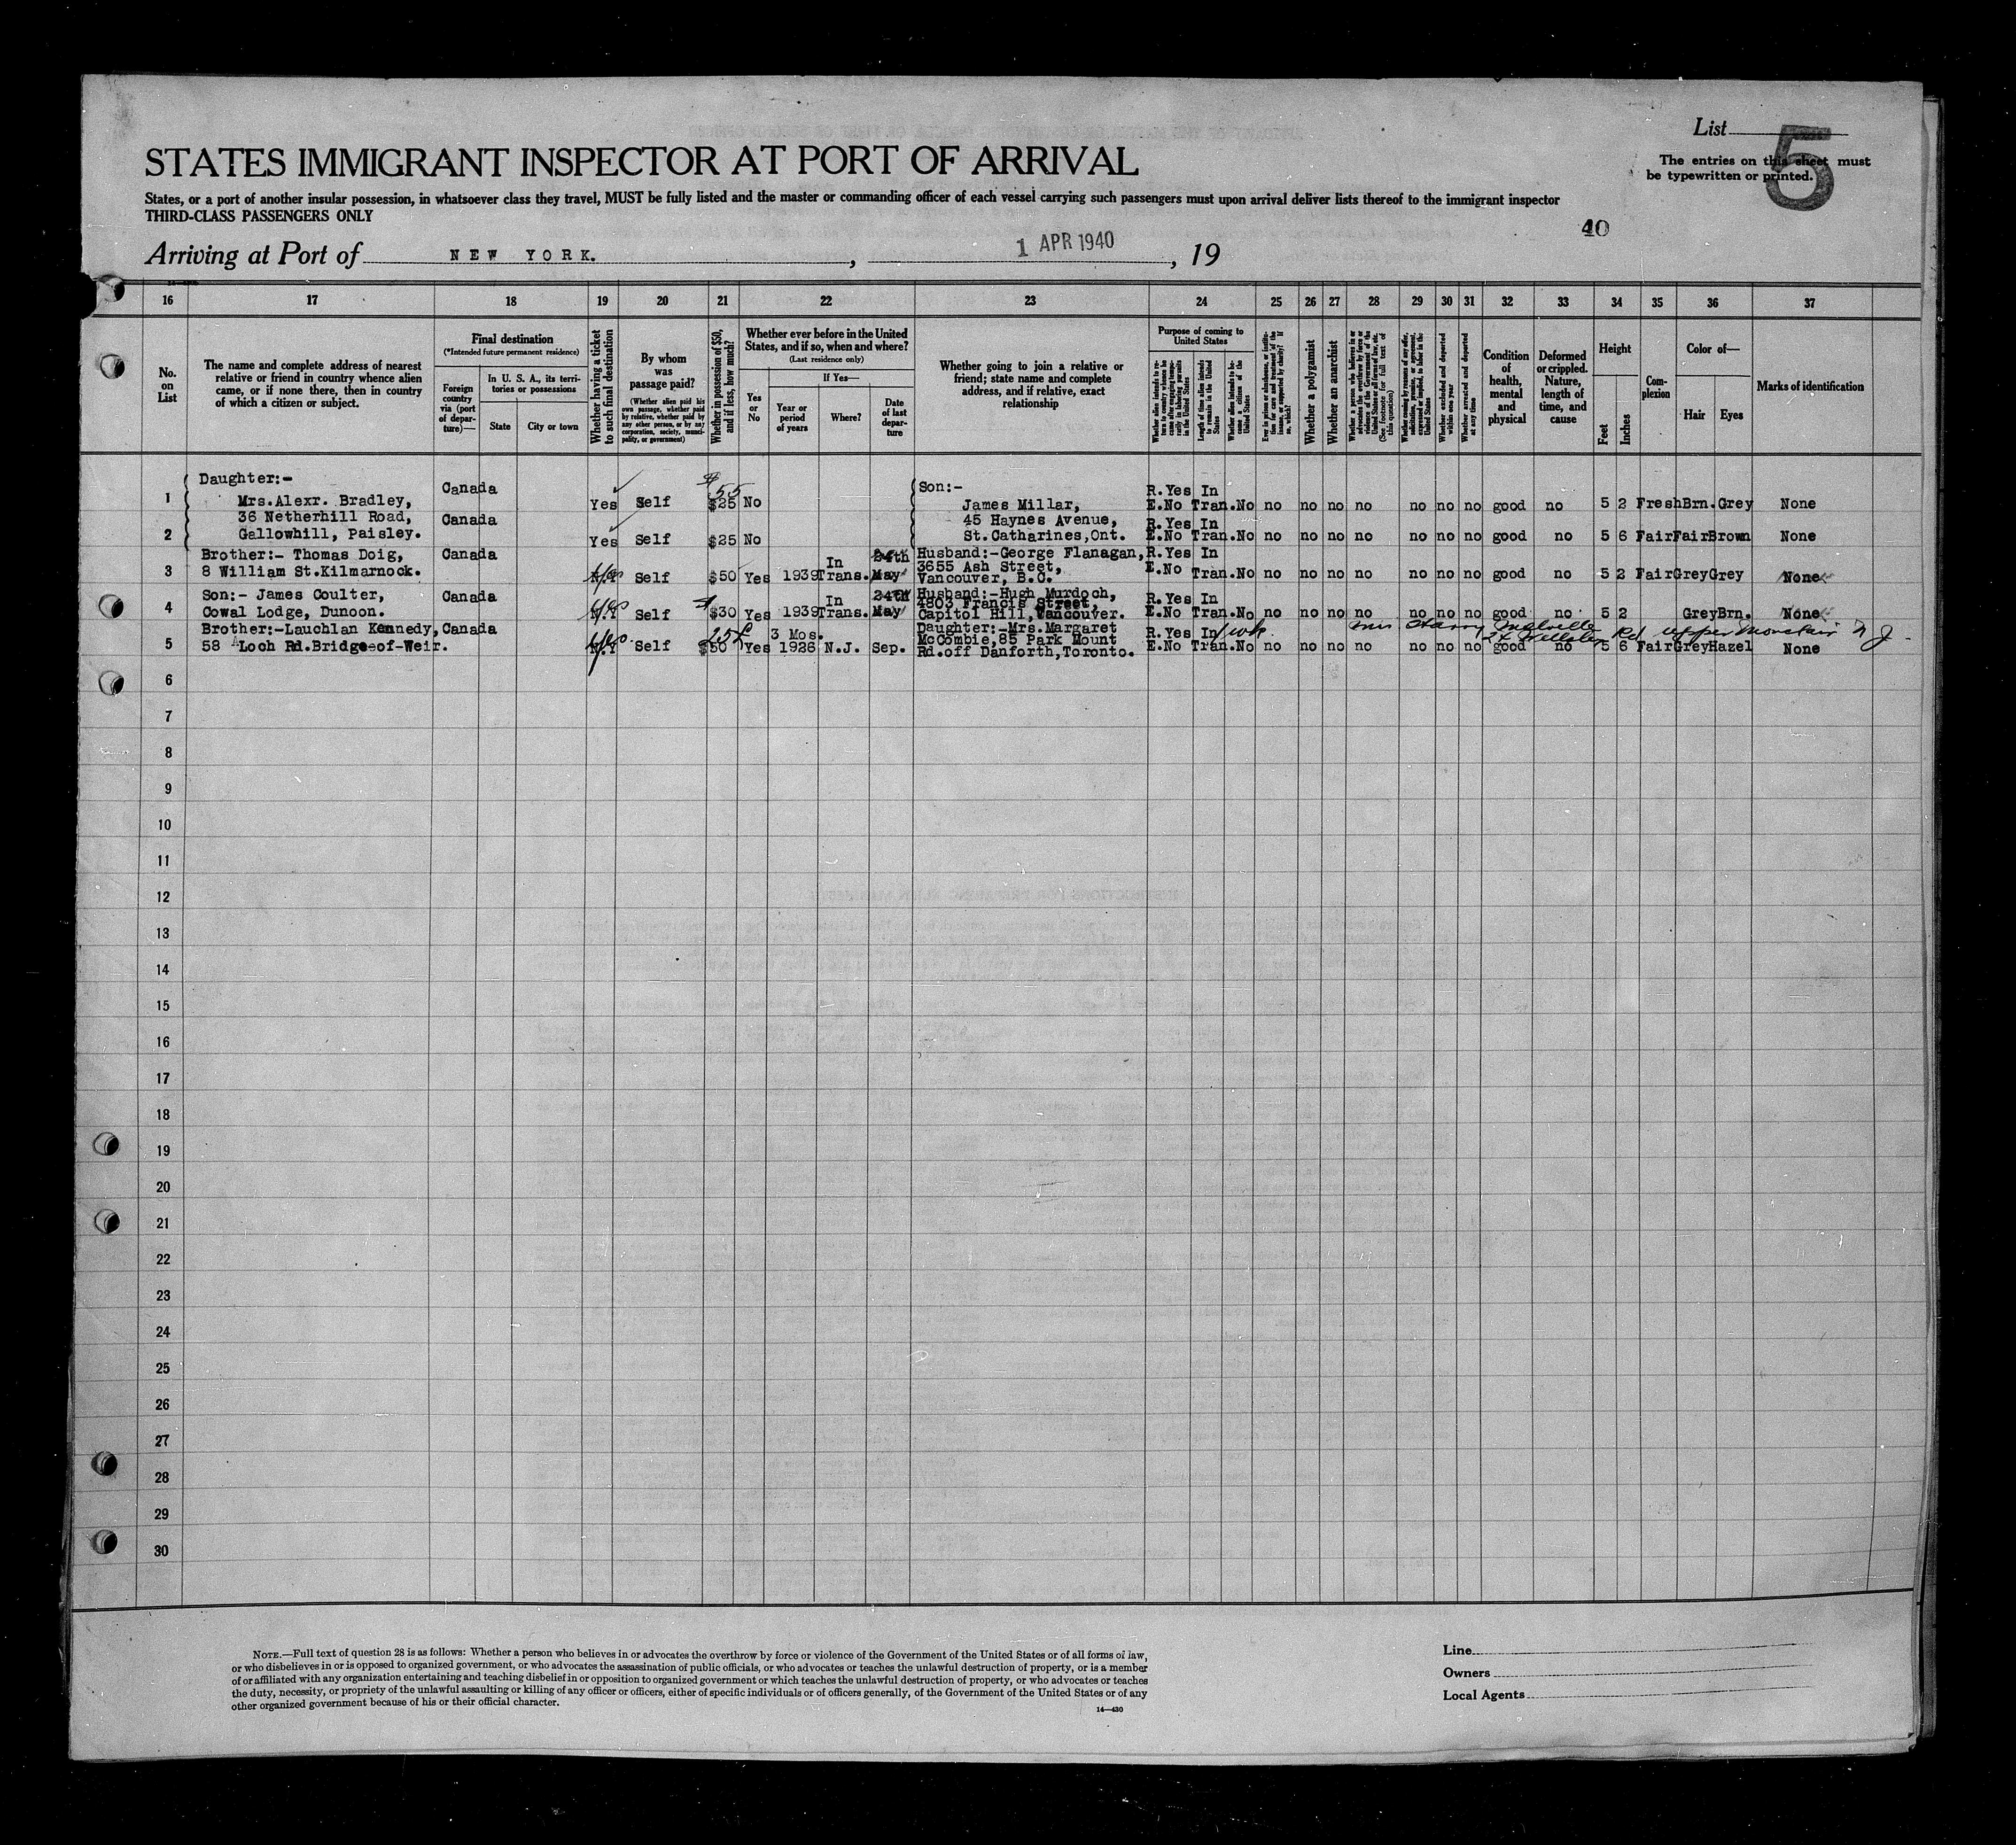 List 5
STATES IMMIGRANT INSPECTOR AT PORT OF ARRIVAL
The entries on this sheet must
be typewritten or printed.
States, or a port of another insular possession, in whatsoever class they travel, MUST be fully listed and the master or commanding officer of each vessel carrying such passengers must upon arrival deliver lists thereof to the immigrant inspector
THIRD-CLASS PASSENGERS ONLY
40
Arriving at Port of NEW YORK. , 1 APR 1940 , 19
16 17 18 19 20 21 22 23 24 25 26 27 28 29 30 31 32 33 34 35 36 37
No. on List
The name and complete address of nearest relative or friend in country whence alien came, or if none there, then in country of which a citizen or subject.
Final destination
(*Intended future permanent residence)
Foreign country via (port of departure)—
In U. S. A., its territories or possessions
State
City or town
Whether having a ticket to such final destination
By whom was passage paid?
(Whether alien paid his own passage, whether paid by relative, whether paid by any other person, or by any corporation, society, municipality, or government)
Whether in possession of $50, and if less, how much?
Whether ever before in the United States, and if so, when and where?
(Last residence only)
Yes or No
If Yes—
Year or period of years
Where?
Date of last departure
Whether going to join a relative or friend; state name and complete address, and if relative, exact relationship
Purpose of coming to United States
Length of time alien intends to remain in the United States
Whether alien intends to become a citizen of the United States
Whether a polygamist
Whether an anarchist
Whether excluded and deported within one year
Whether arrested and deported at any time
Condition of health, mental and physical
Deformed or crippled. Nature, length of time, and cause
Height
Feet
Inches
Complexion
Color of—
Hair
Eyes
Marks of identification
1 Daughter:- Mrs.Alexr. Bradley, Canada Yes Self $25 55 No Son:- James Millar, R.Yes In E.No Tran.No no no no no no no no good no 5 2 Fresh Brn. Grey None
36 Netherhill Road, 45 Haynes Avenue,
2 Gallowhill, Paisley. Canada Yes Self $25 No St.Catharines,Ont. R.Yes In E.No Tran.No no no no no no no no good no 5 6 Fair Fair Brown None
3 Brother:- Thomas Doig, Canada Self $50 Yes 1939 In Trans. 24th May Husband:-George Flanagan, R.Yes In
8 William St.Kilmarnock. 3655 Ash Street, Vancouver, B.C. E.No Tran.No no no no no no no no good no 5 2 Fair Grey Grey None
4 Son:- James Coulter, Canada N.Y Self $30 Yes 1939 In Trans. 24th May Husband:-Hugh Murdoch, R.Yes In
Cowal Lodge, Dunoon. 4803 Francis Street, Capitol Hill,Vancouver. E.No Tran.No no no no no no no no good no 5 2 Grey Brn. None
5 Brother:-Lauchlan Kennedy, Canada N.Y Self $50 Yes 3 Mos. 1926 N.J. Sep. Daughter:-Mrs.Margaret R.Yes In 1 wk. Mrs Harry Melville
58 Loch Rd.Bridge-of-Weir. McCombie,85 Park Mount Rd.off Danforth,Toronto. E.No Tran.No no no no no no no no good no 5 6 Fair Grey Hazel None
Rd Upper Montclair N J
6
7
8
9
10
11
12
13
14
15
16
17
18
19
20
21
22
23
24
25
26
27
28
29
30
NOTE.—Full text of question 28 is as follows: Whether a person who believes in or advocates the overthrow by force or violence of the Government of the United States or of all forms of law,
or who disbelieves in or is opposed to organized government, or who advocates the assassination of public officials, or who advocates or teaches the unlawful destruction of property, or is a member
of or affiliated with any organization entertaining and teaching disbelief in or opposition to organized government or which teaches the unlawful destruction of property, or who advocates or teaches
the duty, necessity, or propriety of the unlawful assaulting or killing of any officer or officers, either of specific individuals or of officers generally, of the Government of the United States or of any
other organized government because of his or their official character.
14—430
Line
Owners
Local Agents